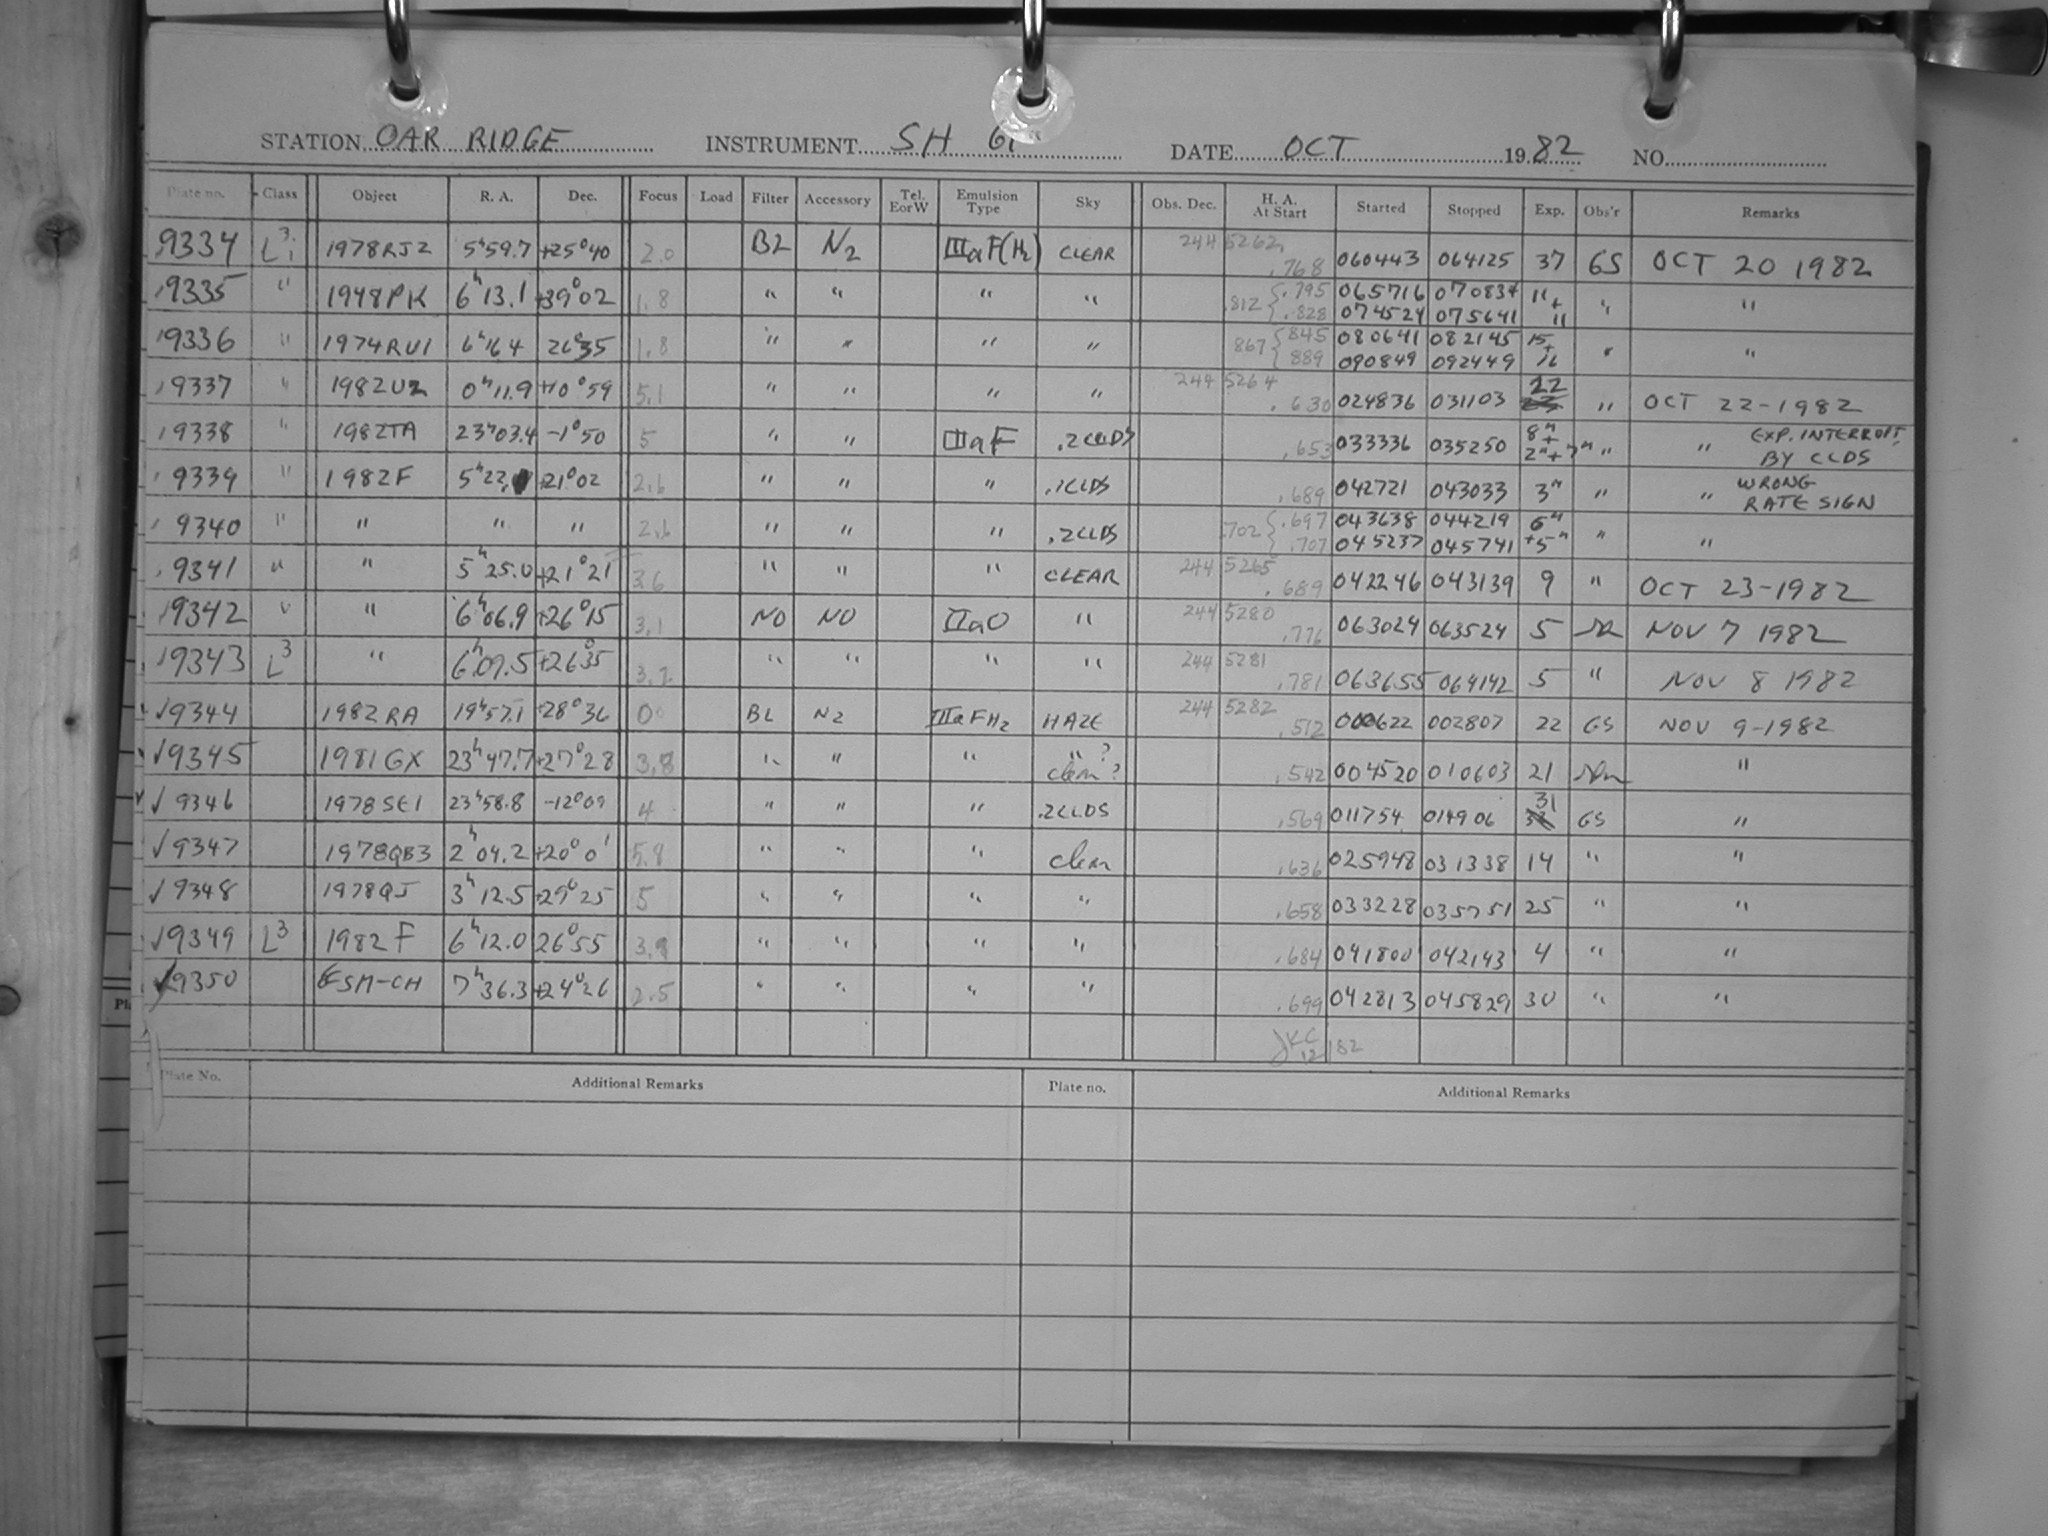 STATION OAK RIDGE INSTRUMENT SH 61" DATE OCT 1982 NO.
Plate no. Class Object R. A. Dec. Focus Load Filter Accessory Tel. E or W Emulsion Type Sky Obs. Dec. H. A. At Start Started Stopped Exp. Obs'r Remarks
9334 L3i 1978RJ2 5h59.7 +25°40 2.0 B2 N2 IIIaF(H2) CLEAR 244 5262 .768 060443 064125 37 GS OCT 20 1982
9335 " 1948PK 6h13.1 +39°02 1.8 " " " " .812 { .795 065716 070834 11+ " "
.828 074524 075641 11
9336 " 1974RU1 6h16.4 26°35 1.8 " " " " 867 { 845 080641 082145 15+ " "
889 090849 092449 16
9337 " 1982UZ 0h11.9 +10°59 5.1 " " " " 244 5264 .630 024836 031103 22 " OCT 22-1982
9338 " 1982TA 23h03.4 -1°50 5 " " IIIaF .2CLDS .653 033336 035250 8m+ 2m+7m " " EXP. INTERRUPT. BY CLDS
9339 " 1982F 5h22. +21°02 2.6 " " " .1CLDS .689 042721 043033 3m " " WRONG RATE SIGN
9340 " " " " 2.6 " " " .2CLDS .702 { .697 043638 044219 6m " "
.707 045237 045741 +5m
9341 " " 5h25.0 +21°21 3.6 " " " CLEAR 244 5265 .689 042246 043139 9 " OCT 23-1982
9342 " " 6h06.9 +26°15 3.1 NO NO IIaO " 244 5280 .776 063024 063524 5 NOV 7 1982
9343 L3 " 6h09.5 +26°35 3.2 " " " " 244 5281 .781 063655 064142 5 " NOV 8 1982
✓9344 1982RA 19h57.1 +28°36 0 BL N2 IIIaFH2 HAZE 244 5282 .512 000622 002807 22 GS NOV 9-1982
✓9345 1981GX 23h47.7 +27°28 3.8 " " " " ? clear? .542 004520 010603 21 "
✓9346 1978SE1 23h58.8 -12°09 4 " " " .2CLDS .569 011754 014906 31 GS "
✓9347 1978QB3 2h04.2 +20°01 5.8 " " " clear .636 025948 031338 14 " "
✓9348 1978QJ 3h12.5 +29°25 5 " " " " .658 033228 035751 25 " "
✓9349 L3 1982F 6h12.0 26°55 3. " " " " .684 041800 042143 4 " "
✓9350 ESM-CH 7h36.3 +24°26 2.5 " " " " .699 042813 045829 30 " "
JKC
12/82
Plate No. Additional Remarks Plate no. Additional Remarks